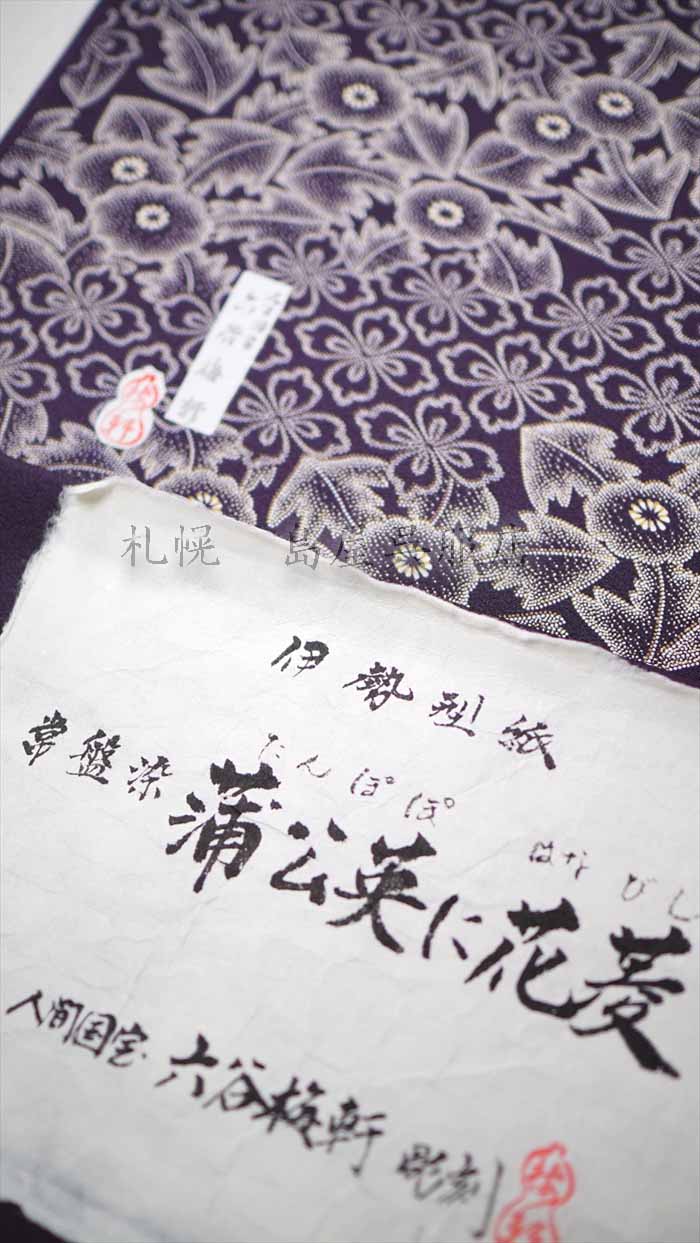 六谷梅軒
札幌 島屋呉服店
伊勢型紙
常盤染
たんぽぽ はなびし
蒲公英に花菱
人間国宝 六谷梅軒 彫刻